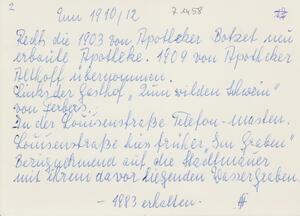 2
Um 1910/12 7.1458
Rechts die 1903 von Apotheker Botzet neu
erbaute Apotheke. 1909 von Apotheker
Althoff übernommen.
Links der Gasthof „Zum wilden Schwein"
von Gerbers.
In der Louisenstraße Telefon-masten.
Louisenstraße hies früher „Im Graben"
Bezugnehmend auf die Stadtmauer
mit ihrem davor liegenden Wassergraben.
- 1983 erhalten -